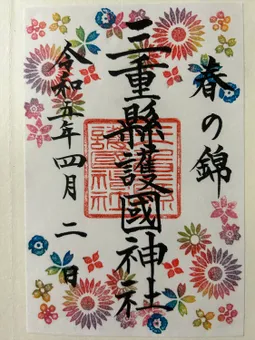 春の錦
三重縣護國神社
令和五年四月二日